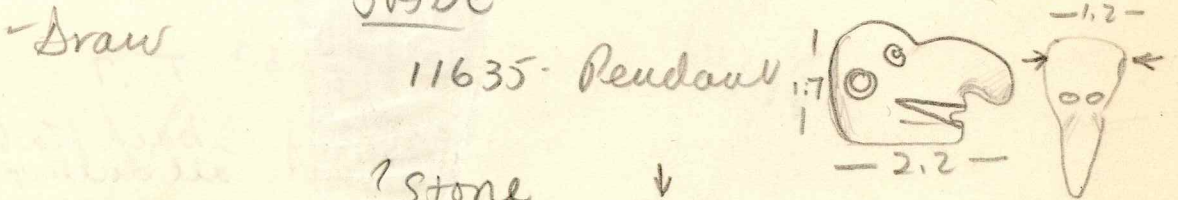 - Draw
11635 - Pendant
1.7
2.2
1.2
? Stone